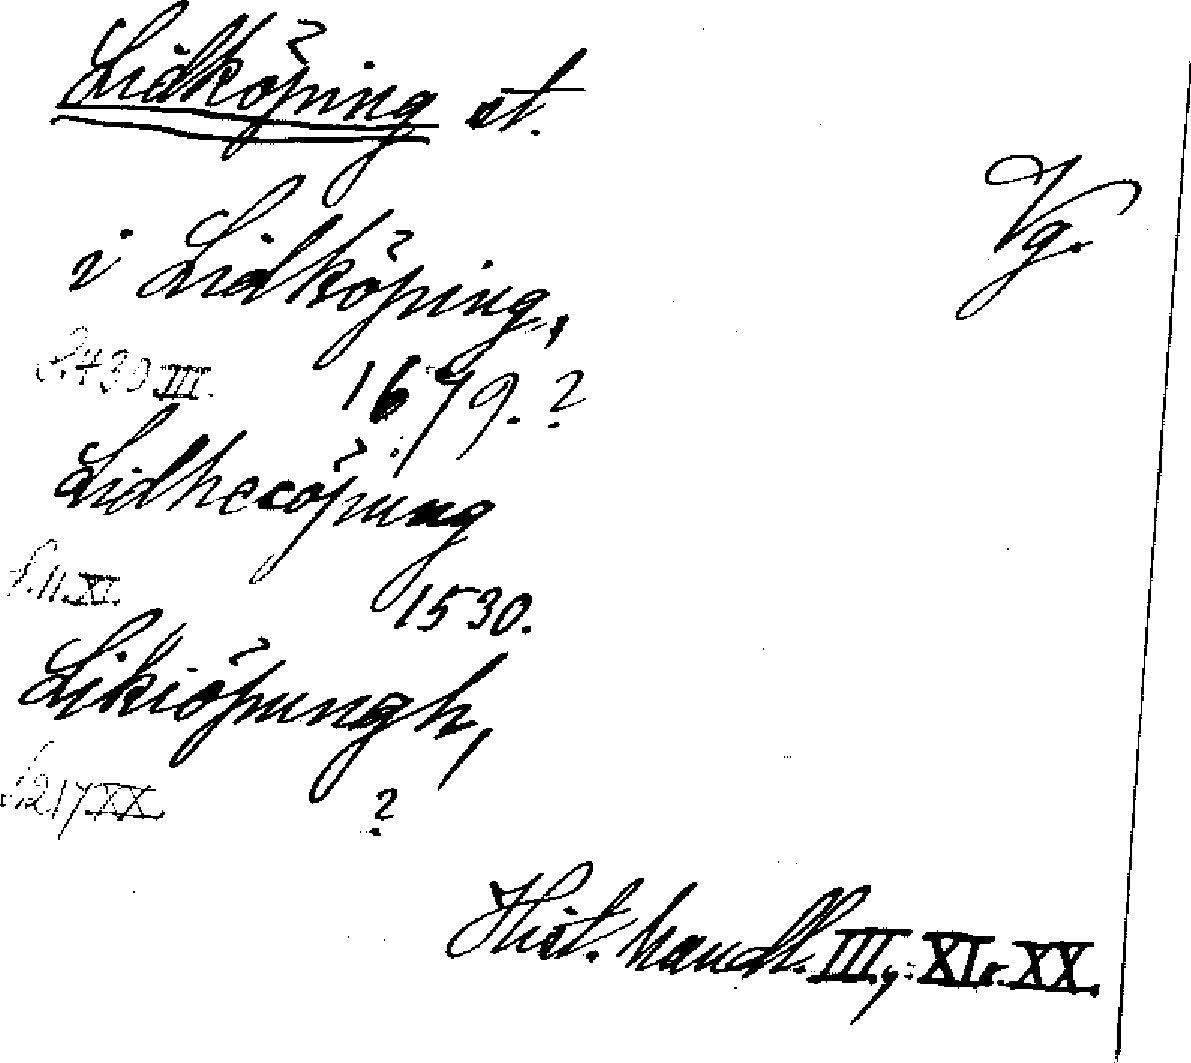 Lidköping st.
Vg.
i Lidköping,
S. 430 III. 1679.?
Lidhecöping
S. 11. XI. 1530.
Likiöpungh,
S. 217. XX. ?
Hist. handl. III, XI, XX.